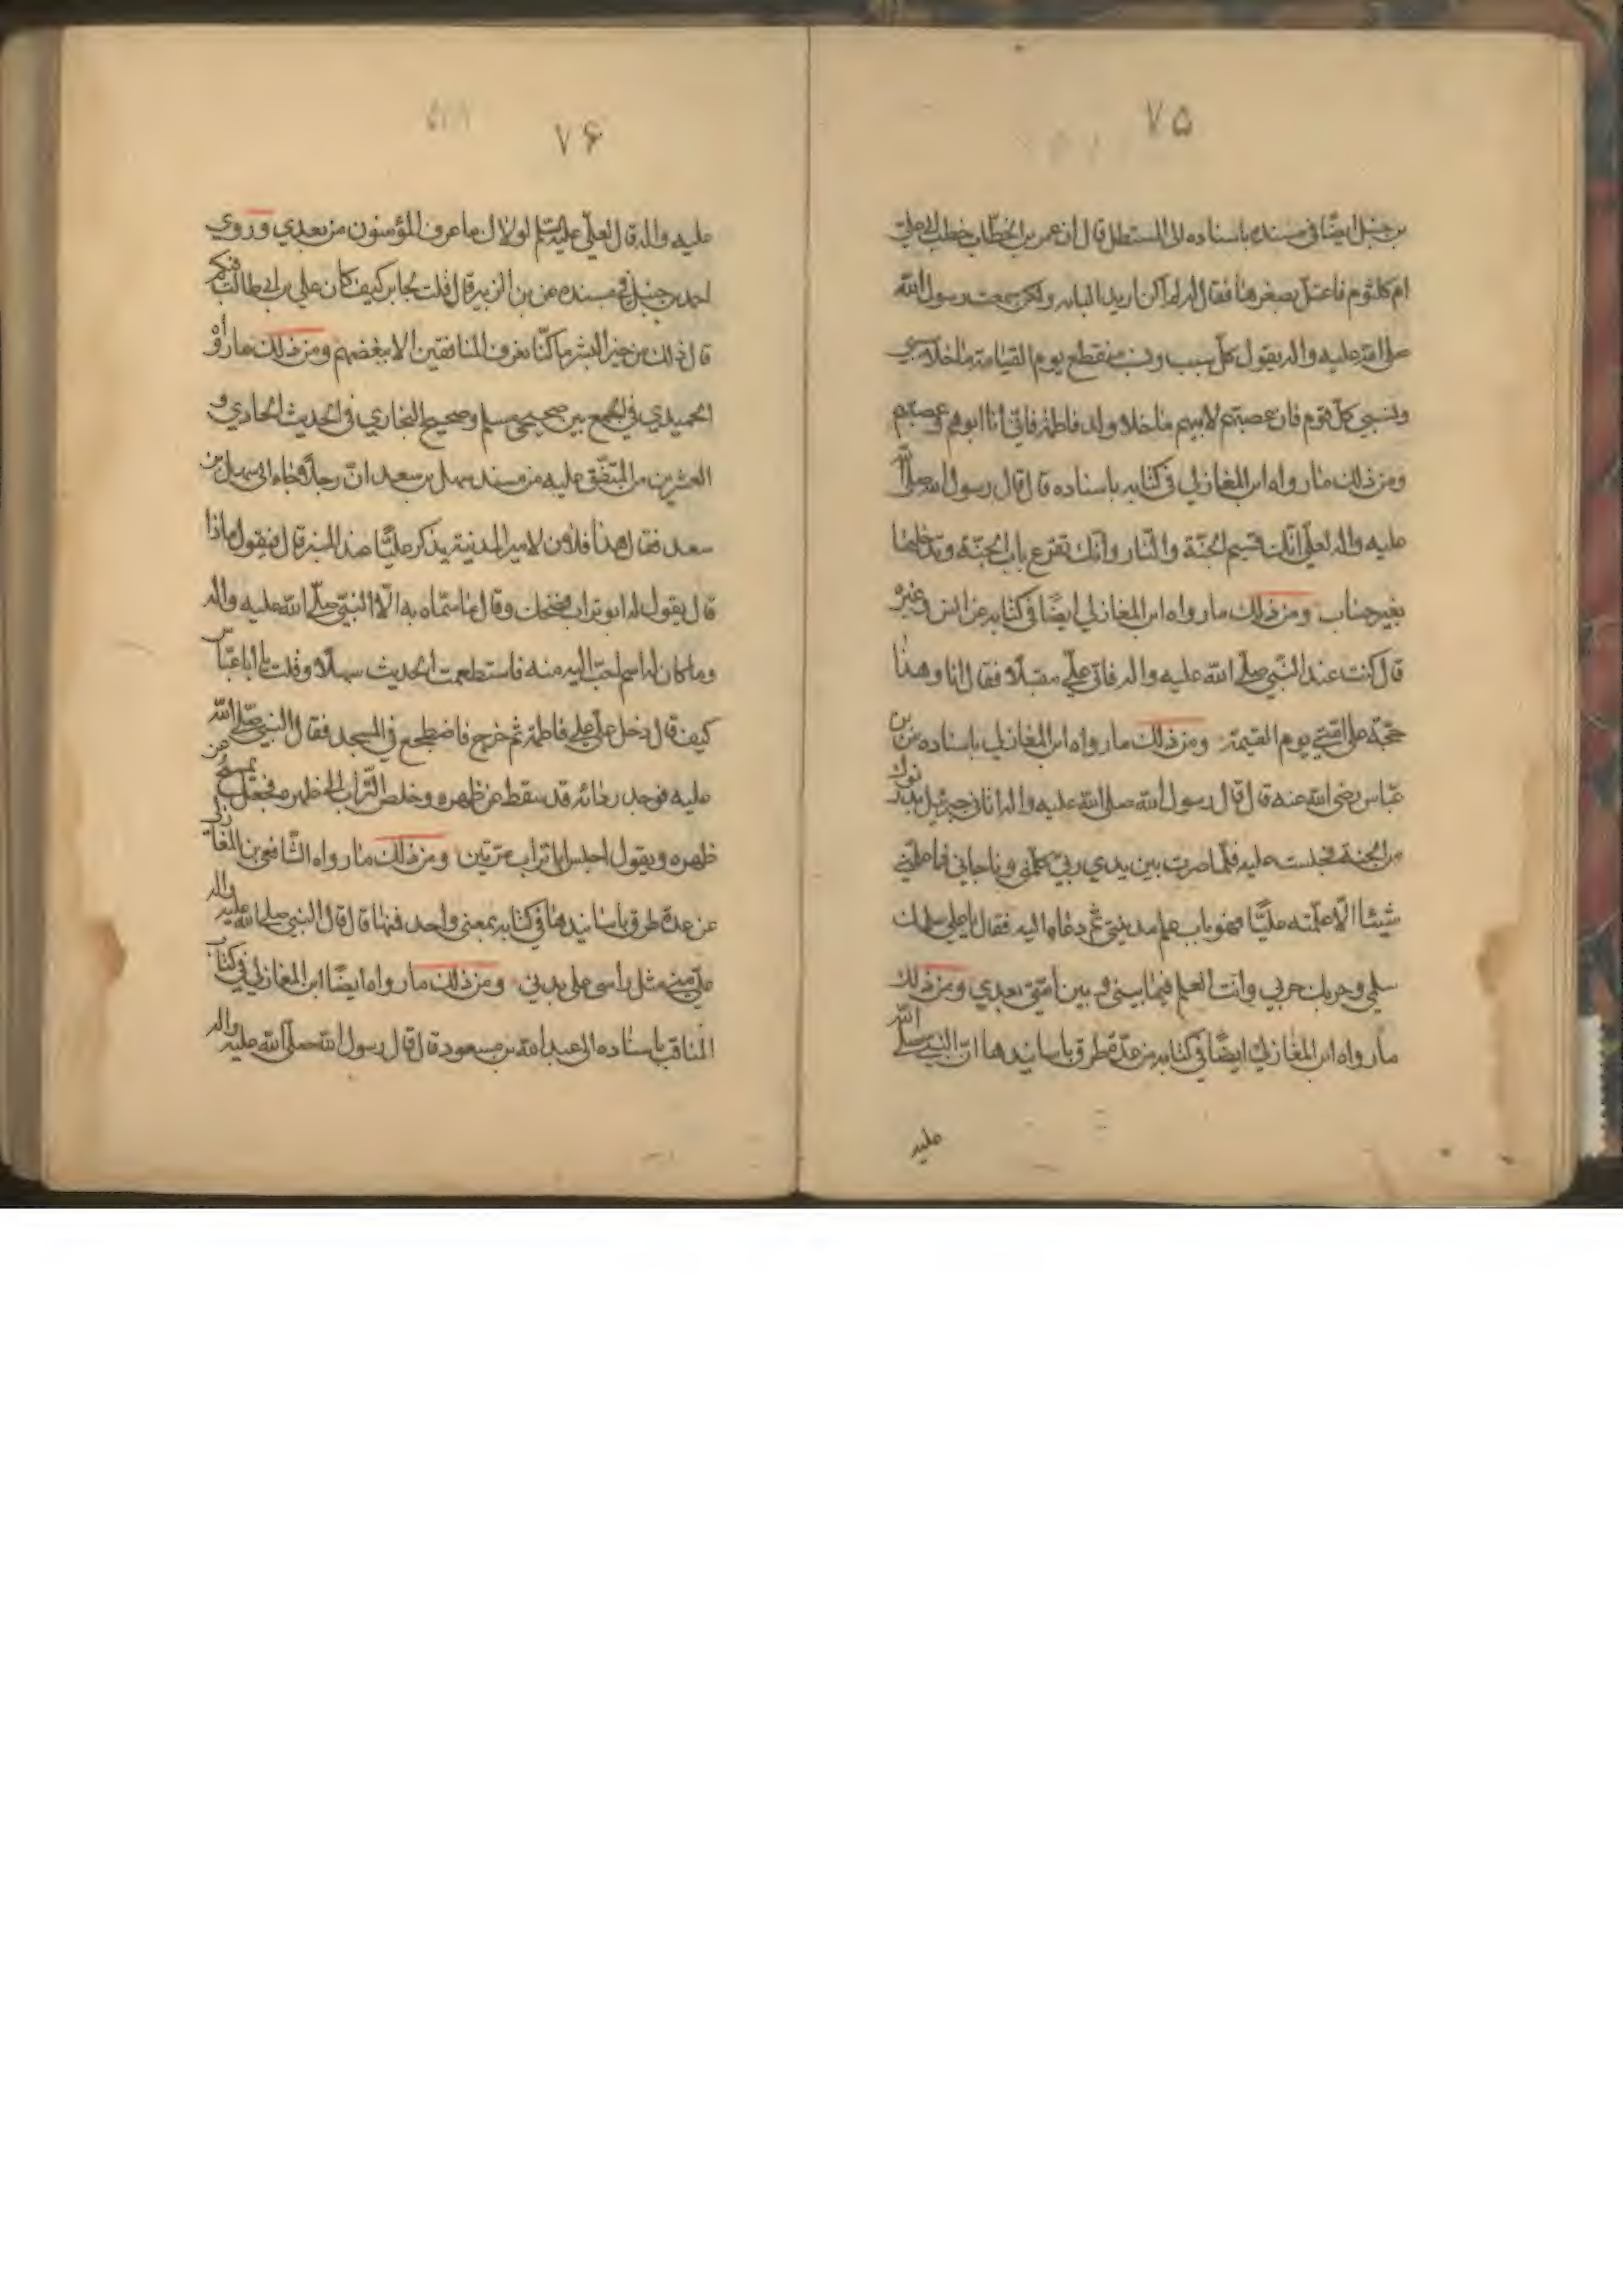 ٧۵
بن حنبل ايضًا في مسنده باسناده الى المستطيل قال ان عمر بن الخطّاب خطب الى علي
ام كلثوم فاعتل بصغرها فقال له لم اكن اريد الباه ولكن سمعت رسول الله
صلى الله عليه واله يقول كلّ سبب ونسب منقطع يوم القيامة ما خلا سببي
ونسبي كلّ قوم فان عصبتهم لابيهم ما خلا ولد فاطمة فاني انا ابوهم وعصبتهم
ومن ذلك ما رواه ابن المغازلي في كتابه باسناده قال قال رسول الله صلى الله
عليه واله لعلي انّك قسيم الجنّة والنّار وانّك تقرع باب الجنّة وتدخلها
بغير حساب ومن ذلك ما رواه ابن المغازلي ايضًا في كتابه عن انس وغيره
قال كنت عند النّبي صلّى الله عليه واله فاتى عليّ مقبلًا فقال انا وهذا
حجّة على امّتي يوم القيمة ومن ذلك ما رواه ابن المغازلي باسناده عن ابن
عبّاس رضي الله عنه قال قال رسول الله صلى الله عليه واله اتاني جبرئيل بدرنوك
من الجنة فجلست عليه فلمّا صرت بين يدي ربّي كلّمني وناجاني فما علّمني
شيئا الّا علّمته عليًّا فهو باب علم مدينتي ثم دعاه اليه فقال يا علي سلمك
سلمي وحربك حربي وانت العلم فيما بيني و بين امّتي بعدي ومن ذلك
ما رواه ابن المغازلي ايضًا في كتابه من عدّة طرق باسانيدها انّ النبي صلى الله
عليه
٧۶
عليه واله قال لعليّ عليه السّلم لولاك ما عرف المؤمنون من بعدي وروي
احمد بن حنبل في مسنده عن بن الزبير قال قلت لجابر كيف كان علي بن ابي طالب فيكم
قال ذلك من خير البشر ما كنّا نعرف المنافقين الا ببغضهم ومن ذلك ما رواه
الحميدي في الجمع بين صحيحي مسلم وصحيح البخاري في الحديث الحادي و
العشرين من المتّفق عليه من مسند سهل بن سعد انّ رجلًا جاء الى سهل بن
سعد فقال هذا فلان لامير المدينة يذكر عليًّا عند المنبر قال فيقول ماذا
قال يقول له ابو تراب فضحك وقال ما سمّاه به الّا النبيّ صلّى الله عليه واله
وما كان له اسم احبّ اليه منه فاستطعمت الحديث سهلًا وقلت يا ابا عبّاس
كيف قال دخل عليّ على فاطمة ثم خرج فاضطجع في المسجد فقال النبي صلّى الله
عليه فوجد ردائه قد سقط عن ظهره وخلص التّراب الى ظهره فجعل يمسح عن
ظهره ويقول اجلس ابا تراب مرّتين ومن ذلك ما رواه الشّافعي بن المغازلي
عن عدة طرق باسانيدها في كتابه بمعنى واحد فمنها قال قال النبي صلى الله عليه واله
عليّ منّي مثل راسي على بدني ومن ذلك ما رواه ايضًا ابن المغازلي في كتاب
المناقب باسناده الى عبد الله بن مسعود قال قال رسول الله صلّى الله عليه واله